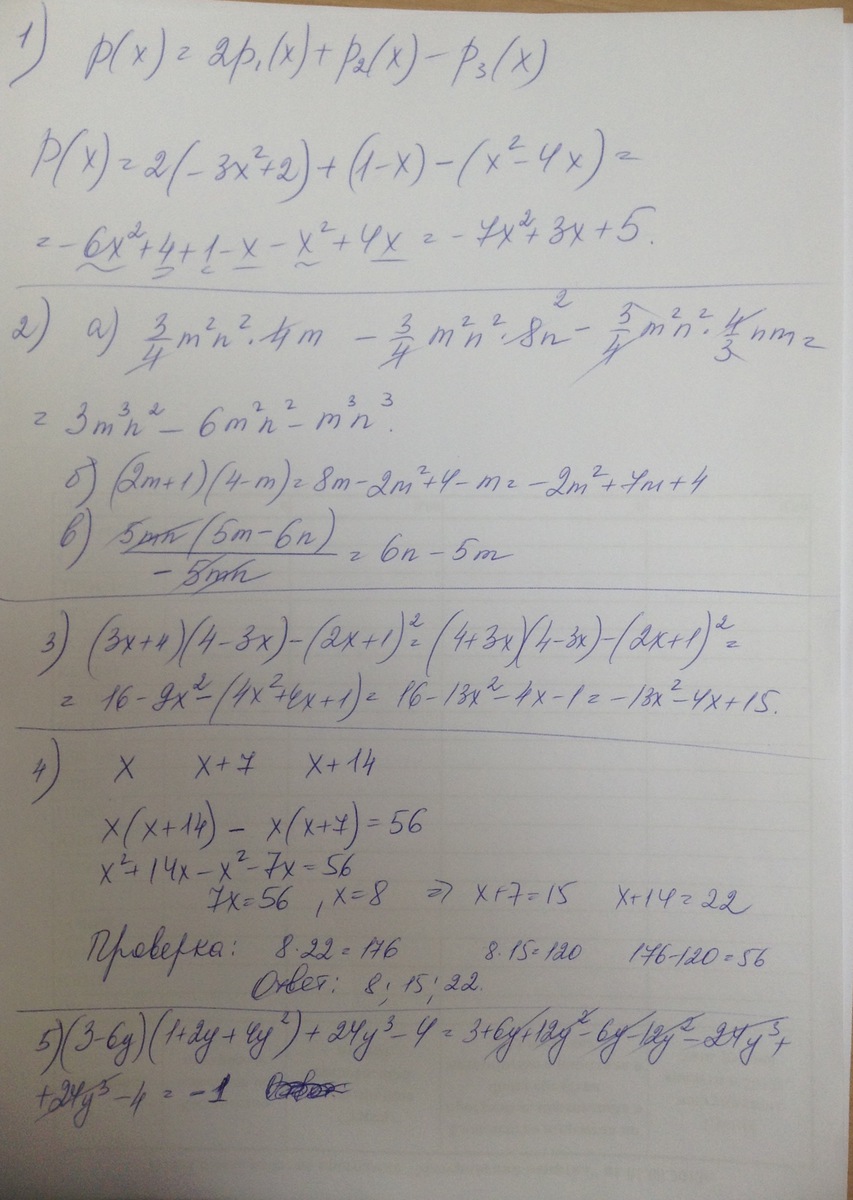 1) p(x) = 2p₁(x) + p₂(x) - p₃(x)
P(x) = 2(-3x²+2) + (1-x) - (x²-4x) =
= -6x²+4+1-x-x²+4x = -7x²+3x+5.
2) а) 3/4 m²n²·4m - 3/4 m²n²·8n² - 3/4 m²n²·4/3 nm =
= 3m³n² - 6m²n² - m³n³.
б) (2m+1)(4-m) = 8m-2m²+4-m = -2m²+7m+4
в) 5mn(5m-6n)/-5mn = 6n-5m
3) (3x+4)(4-3x)-(2x+1)² = (4+3x)(4-3x)-(2x+1)² =
= 16-9x²-(4x²+4x+1) = 16-13x²-4x-1 = -13x²-4x+15.
4) x x+7 x+14
x(x+14) - x(x+7) = 56
x²+14x-x²-7x=56
7x=56, x=8 ⇒ x+7=15 x+14=22
Проверка: 8·22=176 8·15=120 176-120=56
Ответ: 8; 15; 22.
5) (3-6y)(1+2y+4y²)+24y³-4 = 3+6y+12y²-6y-12y²-24y³+
+24y³-4 = -1